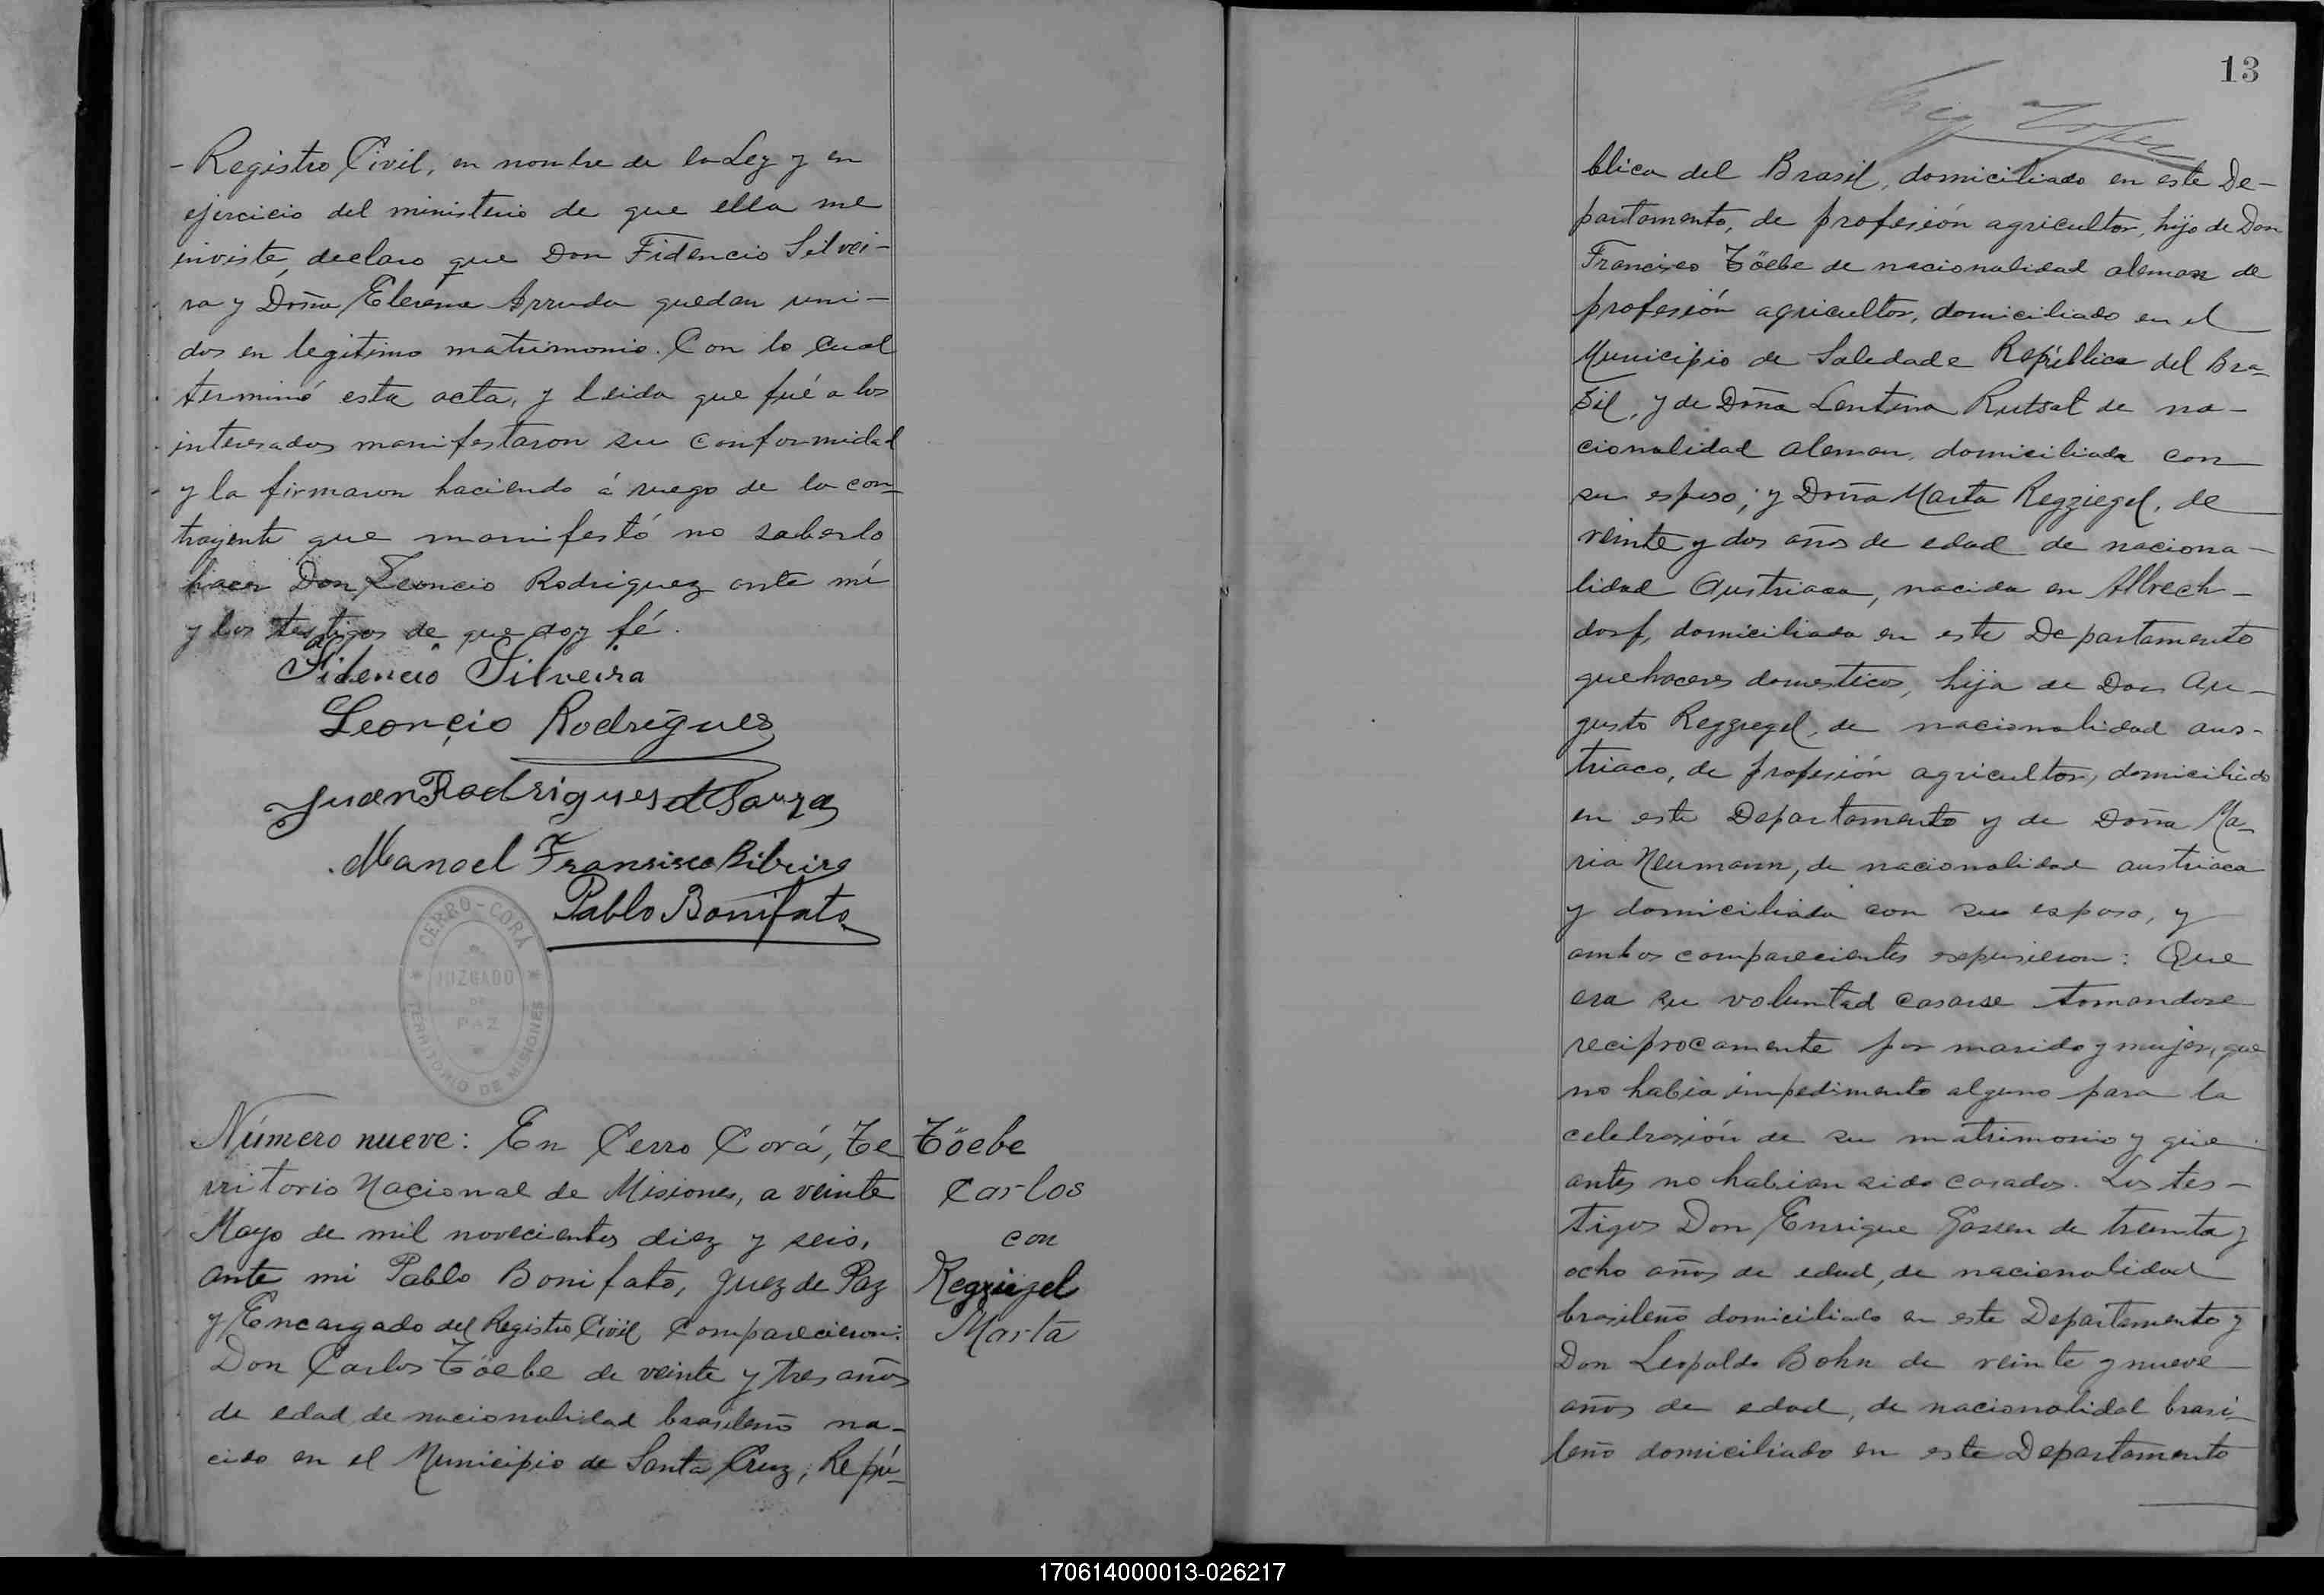 - Registro Civil, en nombre de la Ley y en
ejercicio del ministerio de que ella me
inviste, declaro que Don Fidencio Silvei-
ra y Doña Elerena Arruda quedan uni-
dos en legitimo matrimonio. Con lo cual
terminó esta acta, y leida que fué a los
interesados manifestaron su conformidad
y la firmaron haciendo á ruego de la con-
trayente que manifestó no saberlo
hacer Don Leoncio Rodriguez ante mi
y los testigos de que doy fé.
Fidencio Silveira
Leoncio Rodrigues
Juan Rodrigues de Souza
Manoel Fransisco Ribeiro
Pablo Bonifato
CERRO-CORÁ
JUZGADO
DE
PAZ
TERRITORIO DE MISIONES
Número nueve: En Cerro Corá, Te
rritorio Nacional de Misiones, a veinte
Mayo de mil novecientos diez y seis,
ante mi Pablo Bonifato, Juez de Paz
y Encargado del Registro Civil Comparecieron:
Don Carlos Töebe de veinte y tres años
de edad de nacionalidad brasileño na-
cido en el Municipio de Santa Cruz, Repú-
Töebe
Carlos
con
Regziegel
Marta
13
blica del Brasil, domiciliado en este De-
partamento, de profesión agricultor, hijo de Don
Francisco Töebe de nacionalidad aleman de
profesión agricultor, domiciliado en el
Municipio de Soledade República del Bra-
sil, y de Doña Lentina Rutsat de na-
cionalidad aleman, domiciliada con
su esposo; y Doña Marta Regziegel, de
veinte y dos años de edad de naciona-
lidad Austriaca, nacida en Albrech-
dorf, domiciliada en este Departamento
quehaceres domesticos, hija de Don Au-
gusto Regziegel, de nacionalidad aus-
triaco, de profesión agricultor, domiciliado
en este Departamento y de Doña Ma-
ria Neumann, de nacionalidad austriaca
y domiciliada con su esposo, y
ambos comparecientes expusieron: Que
era su voluntad casarse tomandose
reciprocamente por marido y mujer, que
no habia impedimento alguno para la
celebración de su matrimonio y que
antes no habian sido casados. Los tes-
tigos Don Enrique Gassen de treinta y
ocho años de edad, de nacionalidad
brasileño domiciliado en este Departamento y
Don Leopoldo Bohn de veinte y nueve
años de edad, de nacionalidad brasi-
leño domiciliado en este Departamento
170614000013-026217